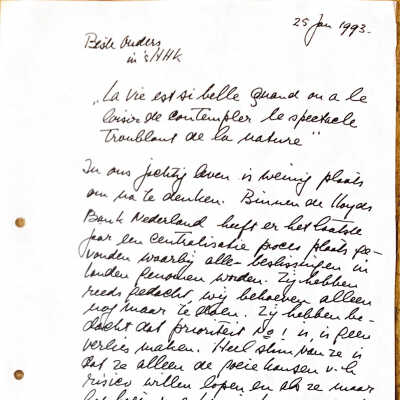 25 Jan 1993.
Beste Ouders
in 's HHK
"La vie est si belle quand on a le
loisir de contempler le spectacle
troublant de la nature"
In ons jachtig leven is weinig plaats
om na te denken. Binnen de Lloyds
Bank Nederland heeft er het laatste
jaar een centralisatie proces plaats ge-
vonden waarbij alle beslissingen in
Londen genomen worden. Zij hebben
reeds gedacht, wij behoeven alleen
nog maar te doen. Zij hebben be-
dacht dat prioriteit no 1 is, is geen
verlies maken. Heel slim van ze is
dat ze alleen de
risico willen lopen en als ze maar